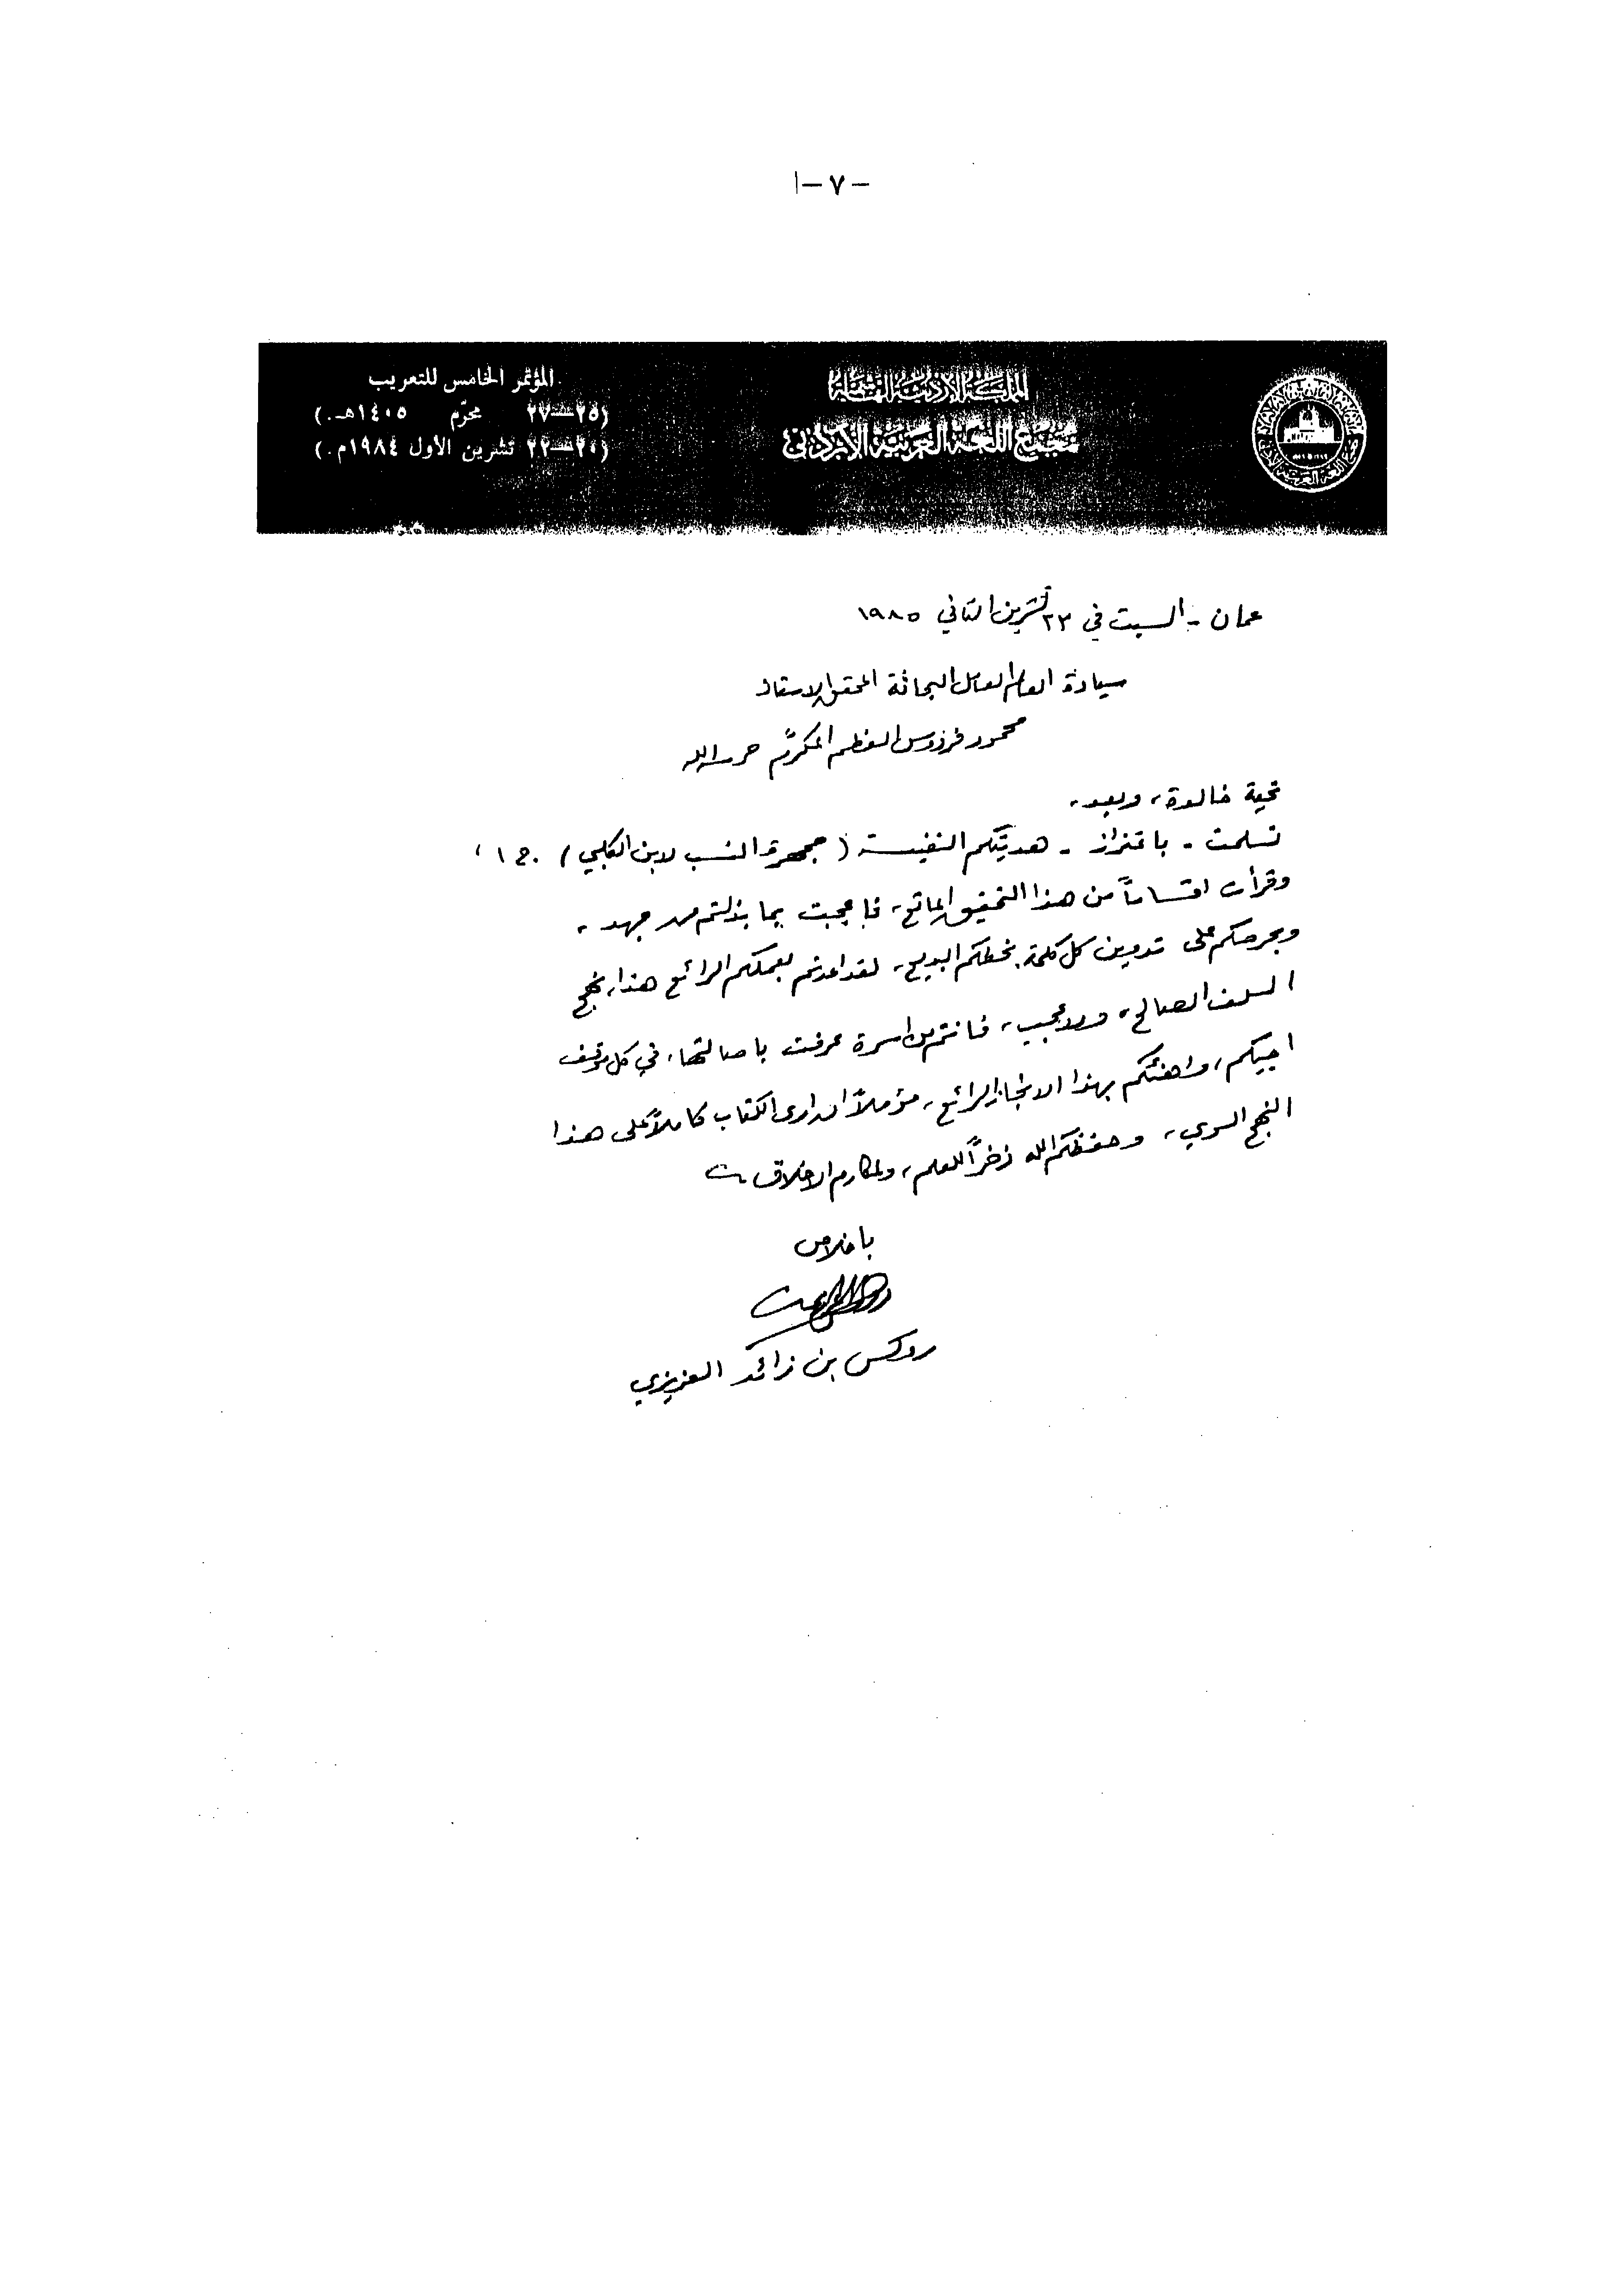 - ٧ - ا
المملكة الأردنية الهاشمية
مجمع اللغة العربية الأردني
المؤتمر الخامس للتعريب
(٢٥ــ٢٧ محرّم ١٤٠٥هـ.)
(٢٠ــ٢٢ تشرين الأول ١٩٨٤م.)
عمان - السبت في ٢٣ تشرين الثاني ١٩٨٥
سيادة العالم العامل البحاثة المحقق الاستاذ
محمود فردوس العظم المكرّم حرسه الله
تحية خالدة، وبعد،
تسلمت - باعتزاز - هديتكم النفيسة (جمهرة النسب لابن الكلبي) ج ١،
وقرأت اقساماً من هذا التحقيق الماتع، فاعجبت بما بذلتم من جهد،
وبحرصكم على تدوين كل كلمة بخطكم البديع، لقد اعدتم بعملكم الرائع هذا، نهج
السلف الصالح، ولا عجب، فانتم من اسرة عرفت باصالتها، في كل موقف
احييكم، واهنئكم بهذا الانجاز الرائع، مؤملاً ان ارى الكتاب كاملاً على هذا
النهج السوي، وحفظكم الله ذخراً للعلم، ولمكارم الاخلاق
باخلاص
روكس بن زائد العزيزي